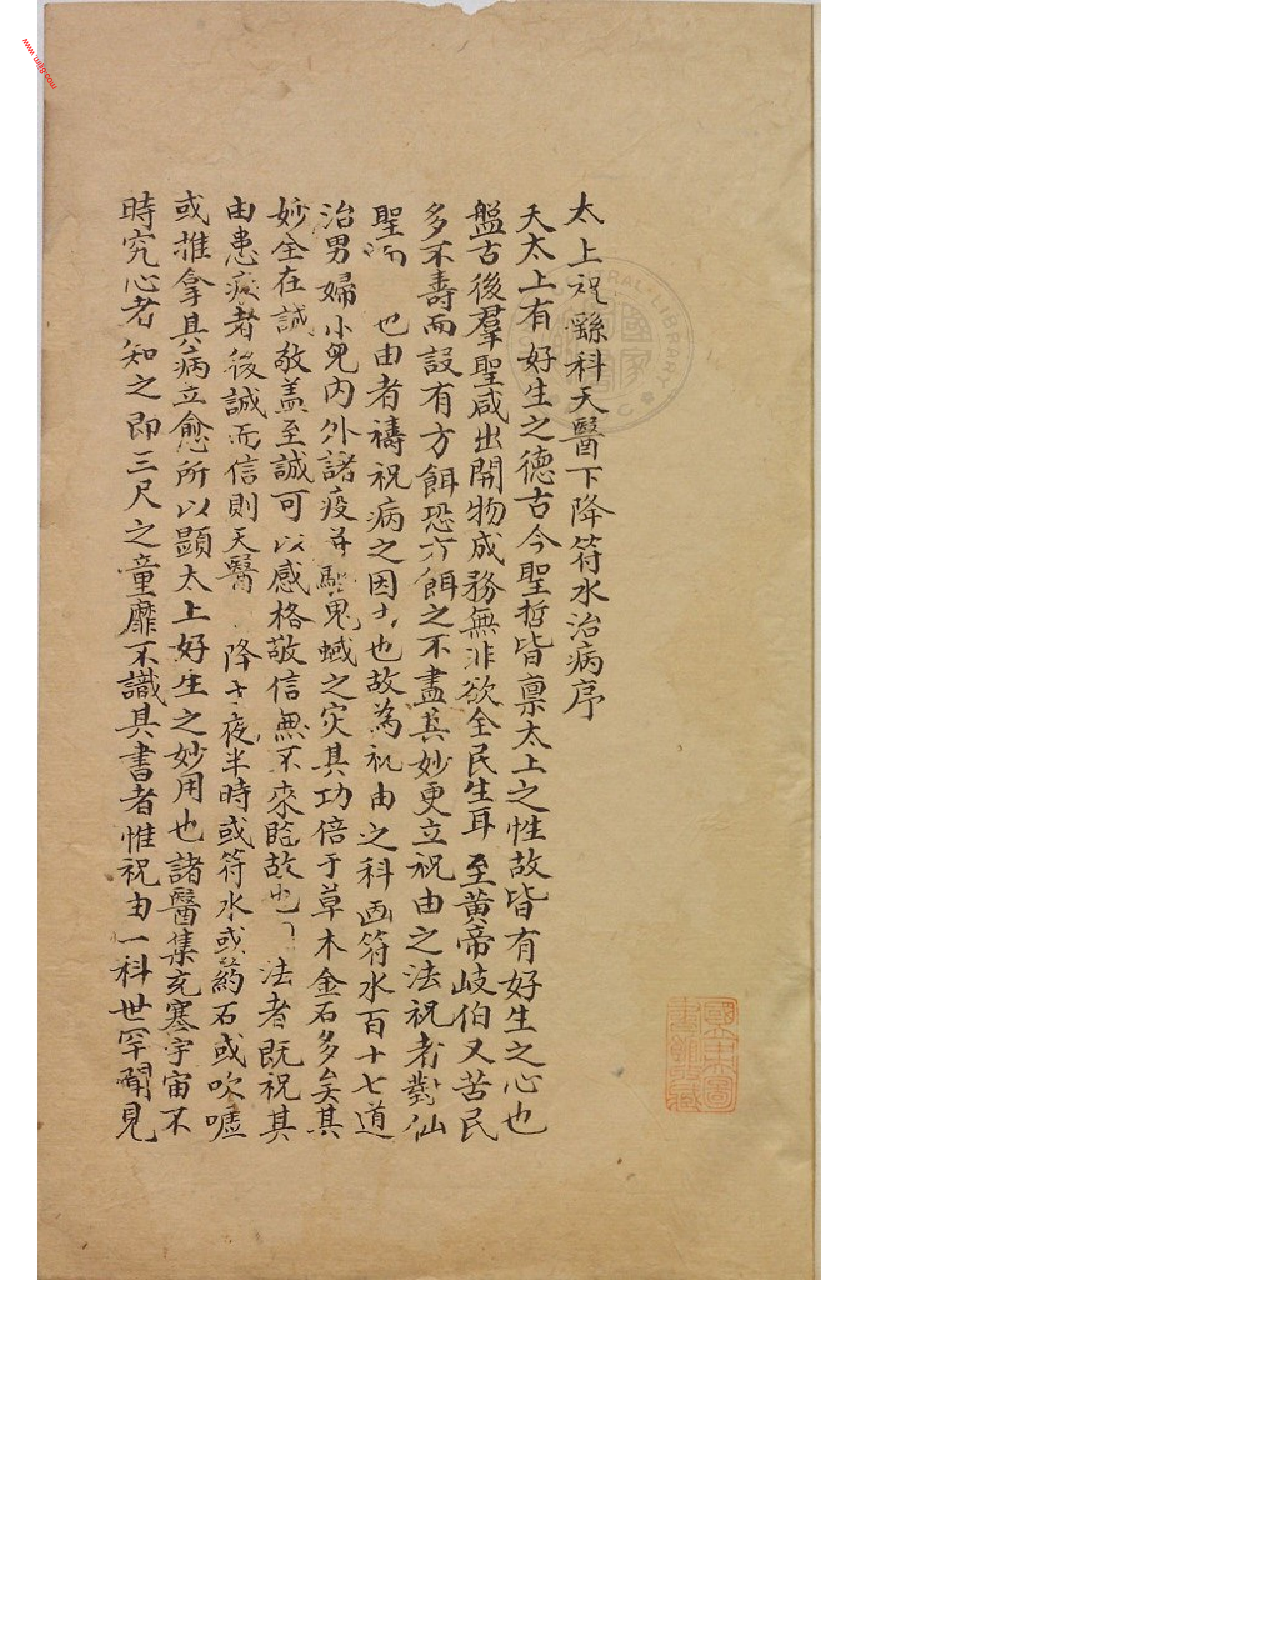 太上祝繇科天醫下降符水治病序
天太上有好生之德古今聖哲皆禀太上之性故皆有好生之心也
盤古後羣聖咸出開物成務無非欲全民生耳至黄帝岐伯又苦民
多不壽而設有方餌恐方餌之不盡其妙更立祝由之法祝者對仙
聖而 也由者禱祝病之因 也故為祝由之科画符水百十七道
治男婦小兒内外諸疫并驅鬼蜮之灾其功倍于草木金石多矣其
妙全在誠敬盖至誠可以感格敬信無不來 故也 法者既祝其
由患 者後誠而信則天醫 降 夜半時或符水或葯石或吹噓
或推拿具病立愈所以顯太上好生之妙用也諸醫集充塞宇宙不
時究心者知之即三尺之童靡不識具書者惟祝由一科世罕聞見
www.uxtjg.com